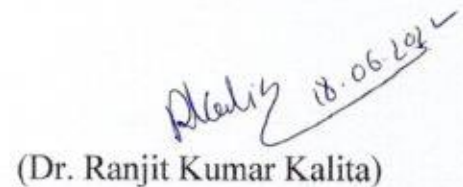 18.06.2022
(Dr. Ranjit Kumar Kalita)